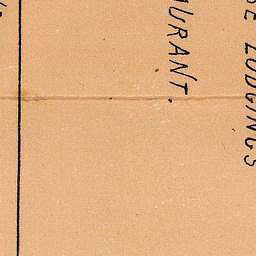 LODGINGS
URANT.